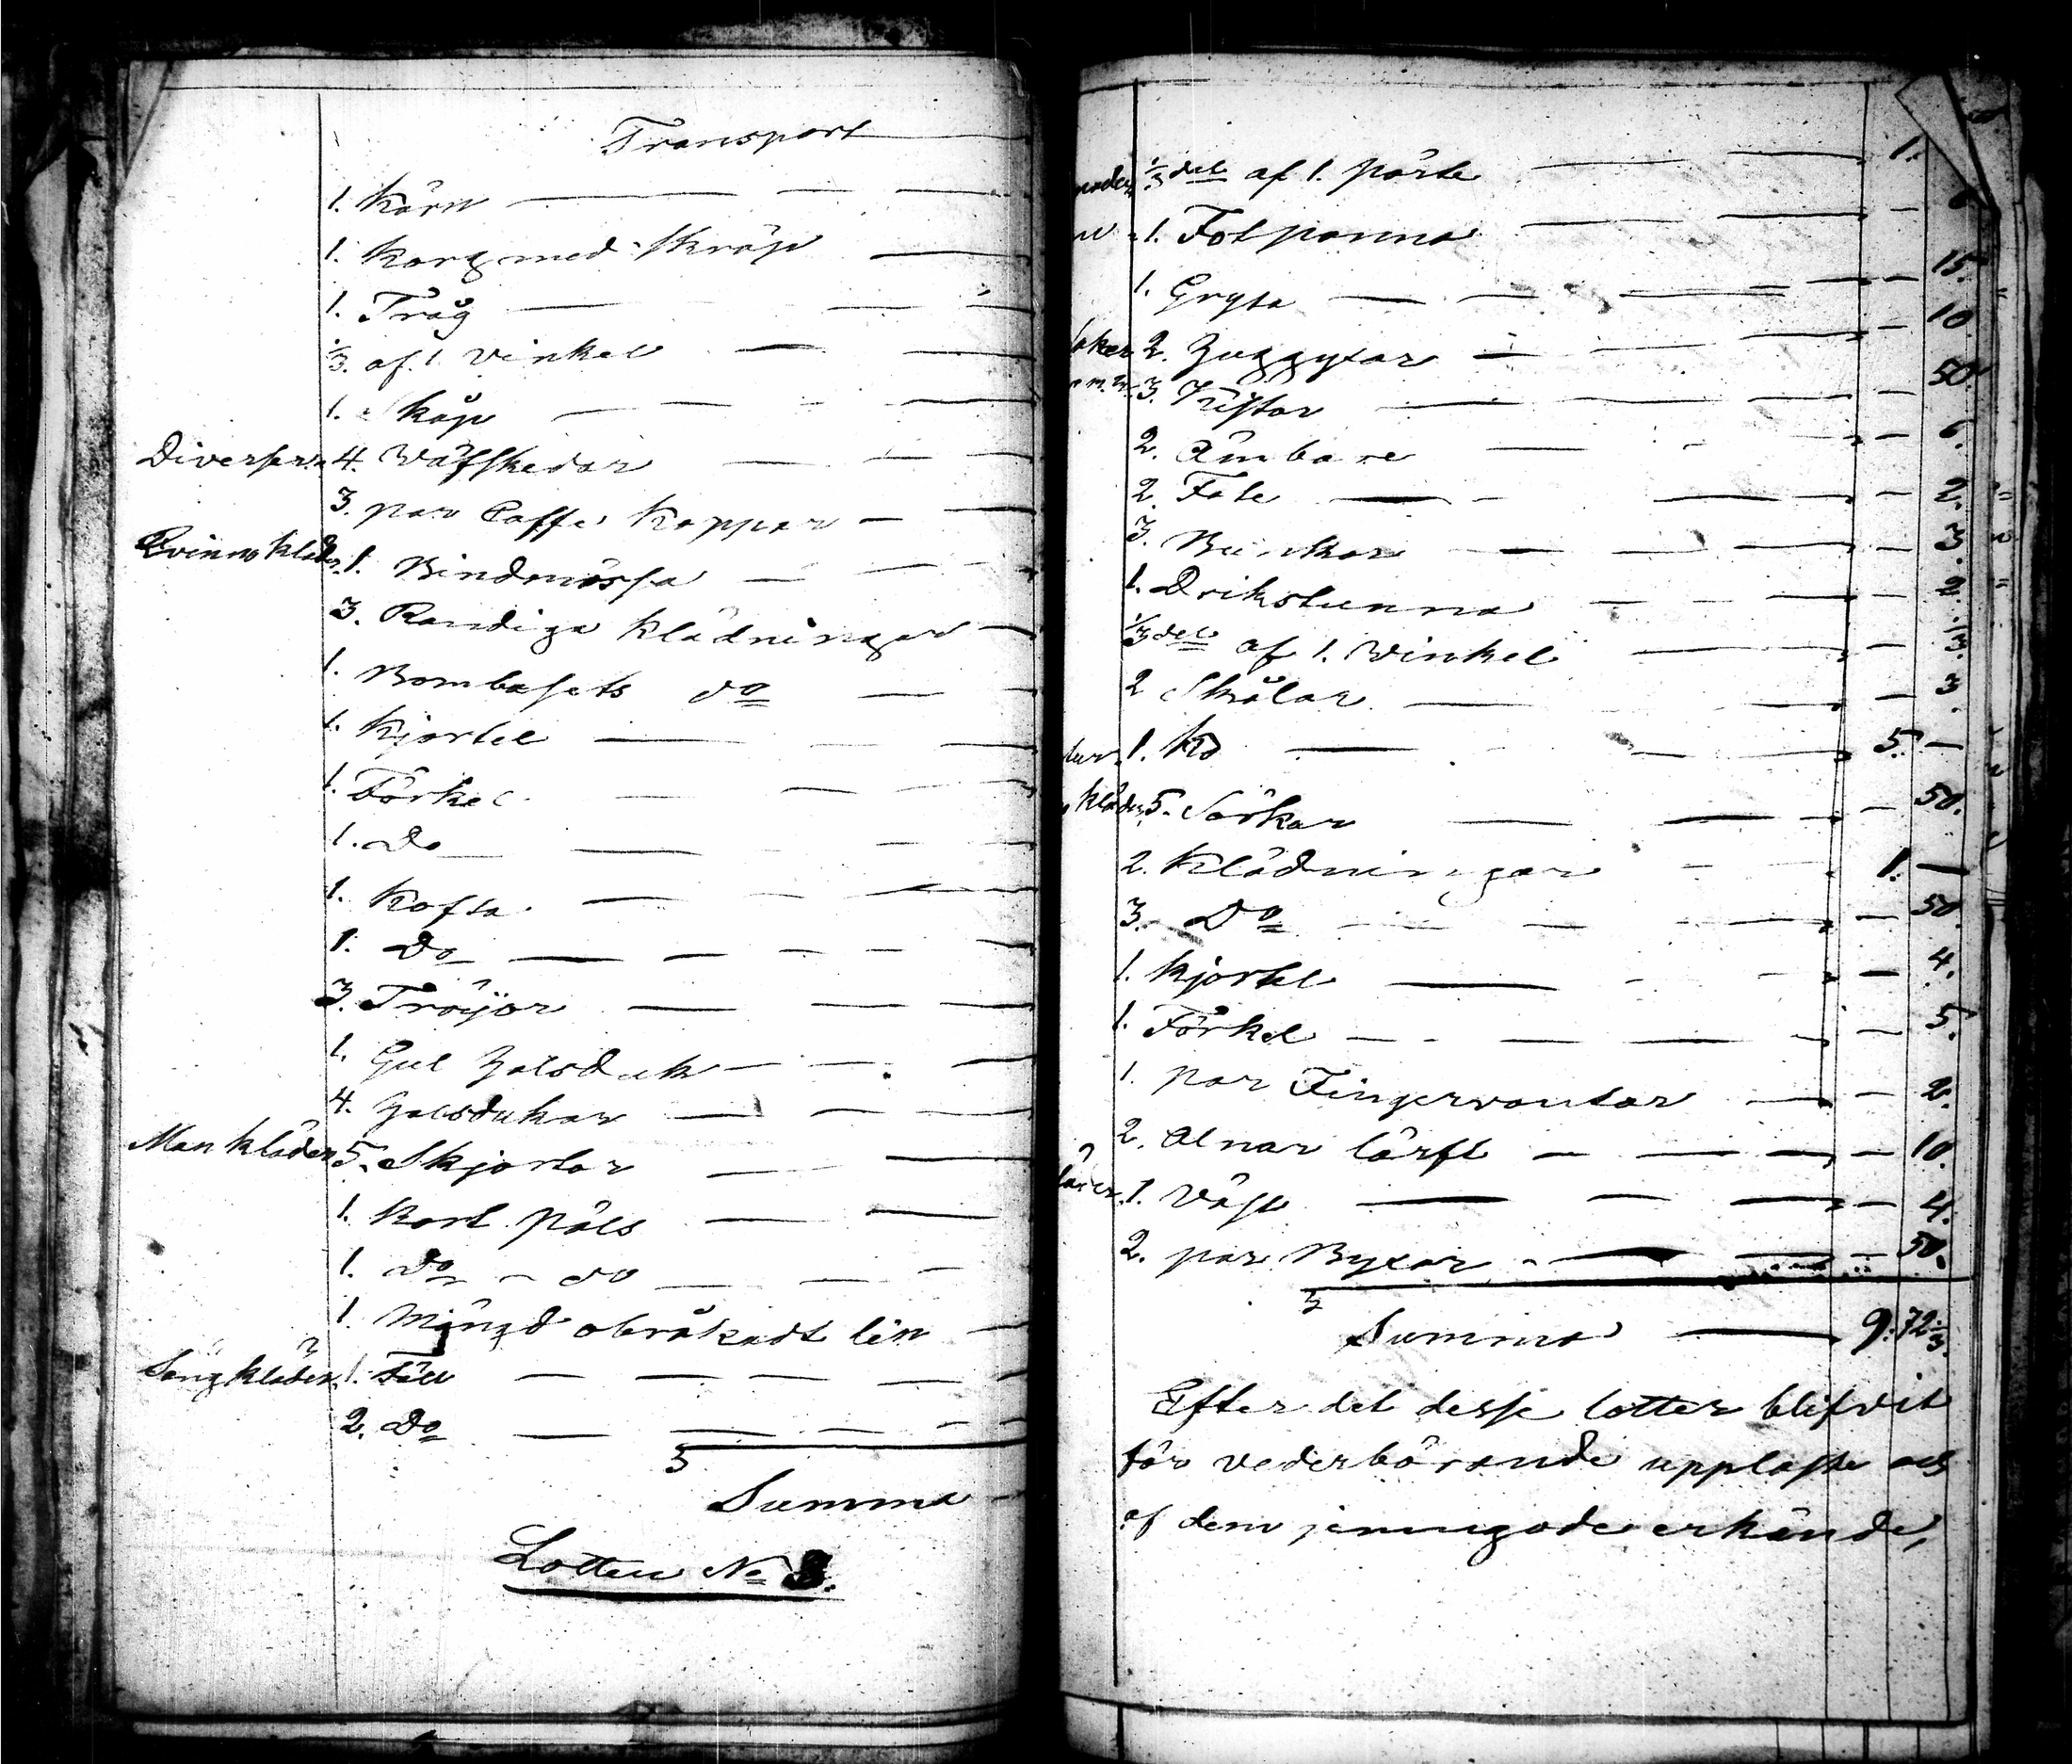 Transport
1. Kärn
1. Korg med Skräp
1. Tråg
1/3. af. 1. Vinkel
1. Skåp
Diverser. 4. Wäfskedar
3. par Caffe Koppar
Qvinno kläder. 1. Bindmössa
3. Randiga Klädningar
1. Bombasets do
1. Kjortel
1. Förkel
1. Do
1. Kofta
1. Do
3. Tröijor
1. Gul Halsduk
4. Halsdukar
Man kläder 5. Skjortor
1. Kort päls
1. Do do
1. Mängd obråkadt lin
Säng kläder. 1. Fäll
2. Do
Summa
Lotten No 3.
1/3 del af 1. pörte 1.
1. Fotpanna
1. Gryta 15.
2. Huggyxar 10
3. Kistor 50
2. Ämbare 6.
2. Fate 2.
3. Bunkar 3.
1. Drikstunna 2
1/3 del af 1. Winkel 1/3.
2 Skålar 3.
1. Ko 5. —
kläder 5. Särkar 50.
2. Klädningar 1. —
3. Do 50
1. Kjortel 4.
1. Förkel 5.
1. par Fingervantar 2.
2. Alnar lärft 10.
1. Väst 4.
2. par Byxor 50.
Summa 9:72 1/3.
Efter det desse lotter blifvit
för vederbörande upplaste och
af dem jemngoda erkände,